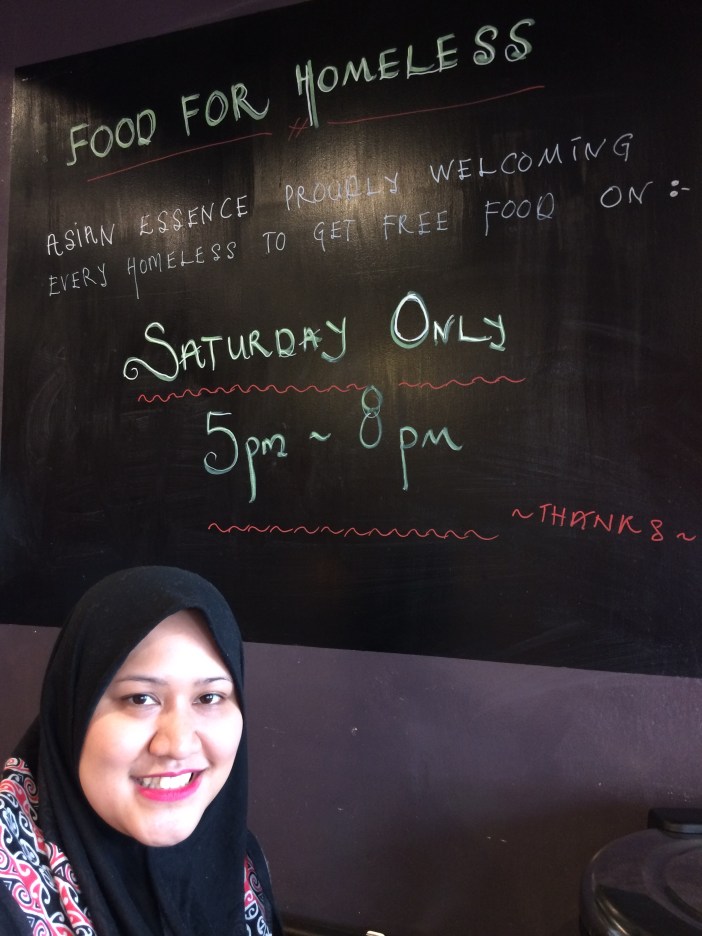 FOOD FOR HOMELESS
ASIAN ESSENCE PROUDLY WELCOMING
EVERY HOMELESS TO GET FREE FOOD ON :-
SATURDAY ONLY
5pm ~ 8pm
~THANKS~